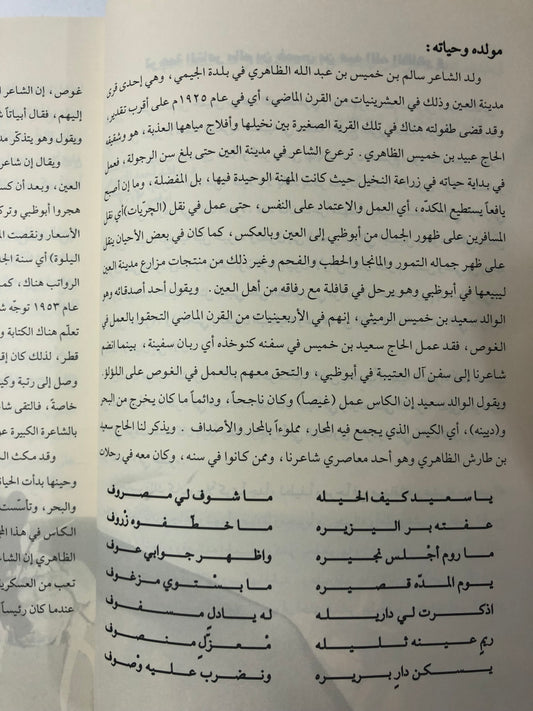 مولده وحياته :
ولد الشاعر سالم بن خميس بن عبد الله الظاهري في بلدة الجيمي، وهي إحدى قرى
مدينة العين وذلك في العشرينيات من القرن الماضي، أي في عام ١٩٢٥م على أقرب تقدير،
وقد قضى طفولته هناك في تلك القرية الصغيرة بين نخيلها وأفلاج مياهها العذبة، هو وشقيقه
الحاج عبيد بن خميس الظاهري. ترعرع الشاعر في مدينة العين حتى بلغ سن الرجولة، فعمل
في بداية حياته في زراعة النخيل حيث كانت المهنة الوحيدة فيها، بل المفضلة، وما إن أصبح
يافعاً يستطيع المكدّه، أي العمل والاعتماد على النفس، حتى عمل في نقل (الچرّيات) أي نقل
المسافرين على ظهور الجمال من أبوظبي إلى العين وبالعكس، كما كان في بعض الأحيان ينقل
على ظهر جماله التمور والمانجا والحطب والفحم وغير ذلك من منتجات مزارع مدينة العين
ليبيعها في أبوظبي وهو يرحل في قافلة مع رفاقه من أهل العين. ويقول أحد أصدقائه وهو
الوالد سعيد بن خميس الرميثي، إنهم في الأربعينيات من القرن الماضي التحقوا بالعمل في
الغوص، فقد عمل الحاج سعيد بن خميس في سفنه كنوخذه أي ربان سفينة، بينما انضم
شاعرنا إلى سفن آل العتيبة في أبوظبي، والتحق معهم بالعمل في الغوص على اللؤلؤ.
ويقول الوالد سعيد إن الكاس عمل (غيصاً) وكان ناجحاً، ودائماً ما كان يخرج من البحر
و(ديينه)، أي الكيس الذي يجمع فيه المحار، مملوءاً بالمحار والأصداف. ويذكر لنا الحاج سعيد
بن طارش الظاهري وهو أحد معاصري شاعرنا، وممن كانوا في سنه، وكان معه في رحلات
يا سعيد كيف الحيله ما شوف لي مصروف
عفته بر اليزيره ما خطّفوه زْروف
ما روم أجْلس نجيره واظهر جوابي عوف
يوم المدّه قصيره ما بسْتوي مزغوف
اذكرت لي داريله له يادل مسفوف
ريم عينه ثليله مْعزّلٍ منصوف
يسكن دارٍ بريره ونضرب عليه وصْوف
غوص، إن الشاعر
إليهم، فقال أبياتاً
ويقول وهو يتذكر
ويقال إن شاعر
العين، وبعد أن
هجروا أبوظبي
الأسعار ونقصت
اليلوة) أي سنة
الرواتب هناك،
عام ١٩٥٣ توجّه
تعلّم هناك الكتابة
قطر، لذلك كان
وصل إلى رتبة
خاصةً، فالتقى
بالشاعرة الكبيرة
وقد مكث
وحينها بدأت
والبحر، وتأسّست
الكاس في هذا
الظاهري إن
تعب من
عندما كان رئيساً